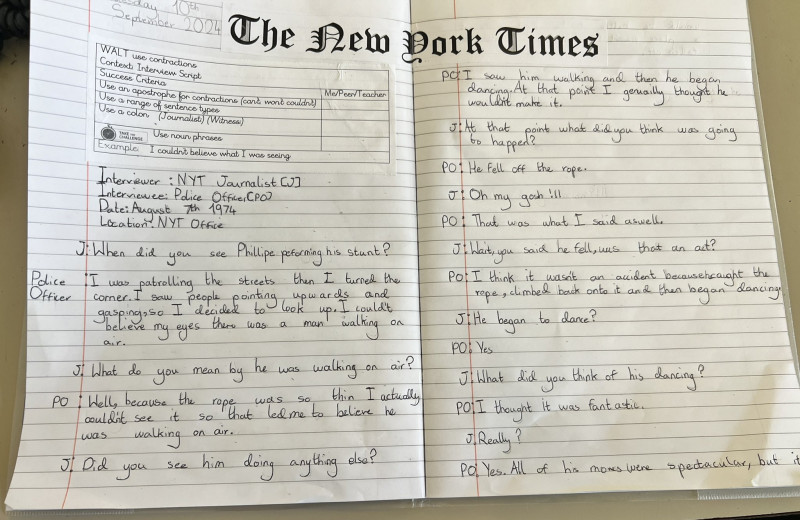 day 10th
September 2024
The New York Times
WALT use contractions
Context: Interview Script
Success Criteria
Me/Peer/Teacher
Use an apostrophe for contractions (can't won't couldn't)
Use a range of sentence types
Use a colon (Journalist) (Witness)
TAKE THE CHALLENGE
Use noun phrases
Example: I couldn't believe what I was seeing
Interviewer : NYT Journalist [J]
Interviewee: Police Office,(PO)
Date: August 7th 1974
Location: NYT Office
J: When did you see Phillipe peforming his stunt?
Police Officer : I was patrolling the streets then I turned the
corner. I saw people pointing upwards and
gasping, so I decided to look up. I could't
believe my eyes there was a man walking on
air.
J: What do you mean by he was walking on air?
PO : Well, because the rope was so thin I actually
couldn't see it so that led me to believe he
was walking on air.
J: Did you see him doing anything else?
PO: I saw him walking and then he began
dancing. At that point I genuilly thought he
wouldn't make it.
J: At that point what did you think was going
to happen?
PO: He fell off the rope.
J: Oh my gosh !!!
PO: That was what I said aswell.
J: Wait, you said he fell, was that an act?
PO: I think it wasn't an accident because he caught the
rope, climbed back onto it and then began dancing
J: He began to dance?
PO: Yes
J: What did you think of his dancing?
PO: I thought it was fantastic.
J: Really?
PO: Yes. All of his moves were spectacular, but it